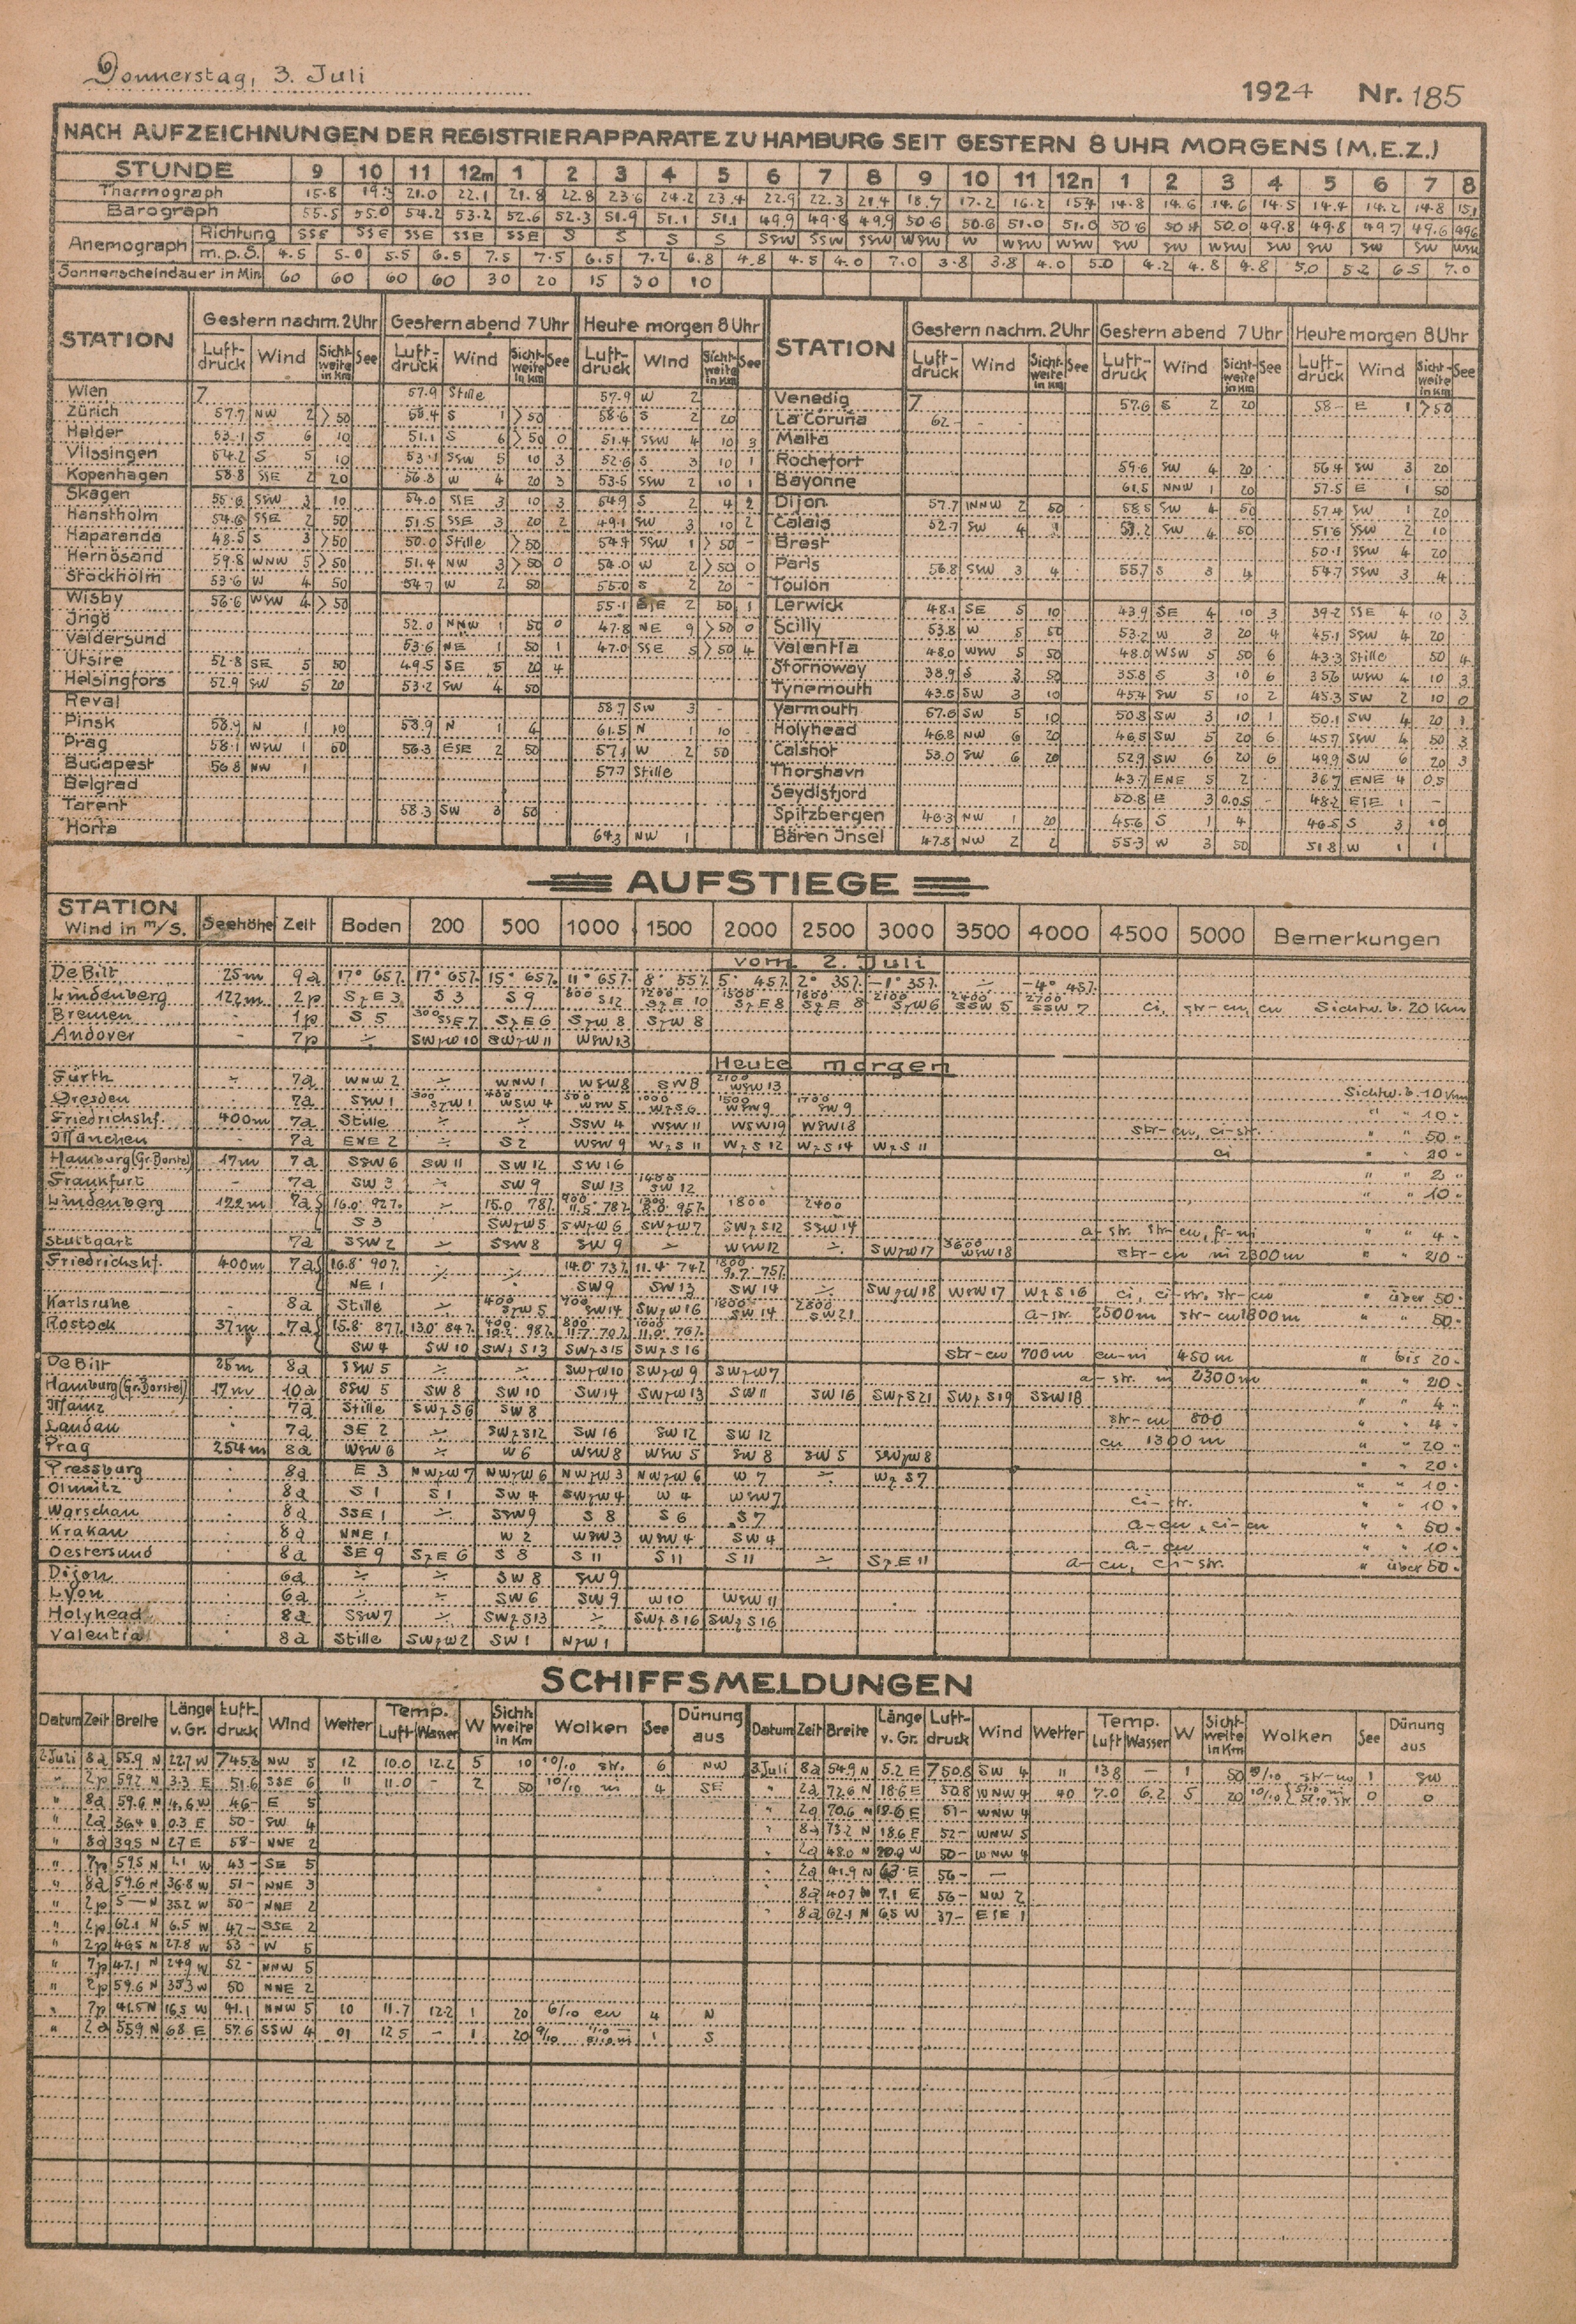 Donnerstag, 3. Juli
1924 Nr. 185
NACH AUFZEICHNUNGEN DER REGISTRIERAPPARATE ZU HAMBURG SEIT GESTERN 8 UHR MORGENS (M.E.Z.)
STUNDE 9 10 11 12m 1 2 3 4 5 6 7 8 9 10 11 12n 1 2 3 4 5 6 7 8
Thermograph 15.8 19.3 21.0 22.1 21.8 22.8 23.6 24.2 23.4 22.9 22.3 21.4 18.7 17.2 16.2 15.4 14.8 14.6 14.6 14.5 14.4 14.2 14.8 15.1
Barograph 55.5 55.0 54.2 53.2 52.6 52.3 51.9 51.1 51.1 49.9 49.8 49.9 50.6 50.6 51.0 51.0 50.6 50.4 50.0 49.8 49.8 49.7 49.6 49.6
Anemograph Richtung SSE SSE SSE SSE SSE S S S S SSW SSW SSW WSW W WSW WSW WSW SW WSW SW SW SW SW WSW
m.p.S. 4.5 5.0 5.5 6.5 7.5 7.5 6.5 7.2 6.8 4.8 4.5 4.0 7.0 3.8 3.8 4.0 5.0 4.2 4.8 4.8 5.0 5.2 6.5 7.0
Sonnenscheindauer in Min. 60 60 60 60 30 20 15 30 10
STATION Gestern nachm. 2 Uhr Gestern abend 7 Uhr Heute morgen 8 Uhr STATION Gestern nachm. 2 Uhr Gestern abend 7 Uhr Heute morgen 8 Uhr
Luftdruck Wind Sichtweite in Km See Luftdruck Wind Sichtweite in Km See Luftdruck Wind Sichtweite in Km See Luftdruck Wind Sichtweite in Km See Luftdruck Wind Sichtweite in Km See Luftdruck Wind Sichtweite in Km See
Wien 7 57.9 Stille 57.9 W 2 Venedig 7 57.6 S 2 20 58- E 1 >50
Zürich 57.7 NW 2 >50 58.4 S 1 >50 58.6 S 2 20 La Coruña 62-
Helder 53.1 S 6 10 51.1 S 6 >50 0 51.4 SSW 4 10 3 Malta
Vlissingen 54.2 S 5 10 53.1 SSW 5 10 3 52.6 S 3 10 1 Rochefort 59.6 SW 4 20 56.4 SW 3 20
Kopenhagen 58.8 SSE 2 20 56.8 W 4 20 3 53.5 SSW 2 10 1 Bayonne 61.5 NNW 1 20 57.5 E 1 50
Skagen 55.8 SSW 3 10 54.0 SSE 3 10 3 54.9 S 2 4 2 Dijon 57.7 NNW 2 50 58.5 SW 4 50 57.4 SW 1 20
Hanstholm 54.6 SSE 2 50 51.5 SSE 3 20 2 49.1 SW 3 10 2 Calais 52.7 SW 4 SW 4 50 51.6 SSW 2 10
Haparanda 48.5 S 3 >50 50.0 Stille >50 54.4 SSW 1 >50 - Brest 50.1 SSW 4 20
Hernösand 59.8 WNW 5 >50 51.4 NW 3 >50 0 54.0 W 2 >50 0 Paris 56.8 SSW 3 4 55.7 S 3 4 54.7 SSW 3 4
Stockholm 53.6 W 4 50 54.7 W 2 50 55.0 S 2 20 - Toulon
Wisby 56.6 WSW 4 >50 55.1 ESE 2 50 1 Lerwick 48.1 SE 5 10 43.9 SE 4 10 3 39.2 SSE 4 10 3
Ingö 52.0 NNW 1 50 0 47.8 NE 9 >50 0 Scilly 53.8 W 5 50 53.2 W 3 20 4 45.1 SSW 4 20
Valdersund 53.6 NE 1 50 1 47.0 SSE 5 >50 4 Valentia 48.0 WSW 5 50 48.0 WSW 5 50 6 43.3 Stille 50 4
Utsire 52.8 SE 5 50 49.5 SE 5 20 4 Stornoway 38.9 S 3 50 35.8 S 3 10 6 35.6 WSW 4 10 3
Helsingfors 52.9 SW 5 20 53.2 SW 4 50 Tynemouth 43.5 SW 3 10 45.4 SW 5 10 2 45.3 SW 2 10 0
Reval 58.7 SW 3 - Yarmouth 57.6 SW 5 10 50.8 SW 3 10 1 50.1 SW 4 20 1
Pinsk 58.9 N 1 10 58.9 N 1 4 61.5 N 1 10 Holyhead 46.8 NW 6 20 46.8 SW 5 20 6 45.7 SSW 4 50 3
Prag 58.1 WSW 1 50 56.3 ESE 2 50 57.1 W 2 50 Calshot 53.0 SW 6 20 52.9 SW 6 20 6 49.9 SW 6 20 3
Budapest 56.8 NW 1 57.7 Stille Thorshavn 43.7 ENE 5 2 36.7 ENE 4 0.5
Belgrad Seydisfjord 50.8 E 3 0.05 - 48.2 ESE 1 -
Tarent 58.3 SW 3 50 Spitzbergen 46.3 NW 1 20 45.6 S 1 4 46.5 S 3 10
Horta 64.3 NW 1 Bären Jnsel 47.8 NW 2 2 55.3 W 3 50 51.8 W 1 1
AUFSTIEGE
STATION Wind in m/s. Seehöhe Zeit Boden 200 500 1000 1500 2000 2500 3000 3500 4000 4500 5000 Bemerkungen
vom 2. Juli
De Bilt 25m 9a 17° 65% 17° 65% 15° 65% 11° 65% 8° 55% 5° 45% 2° 35% -1° 35% ÷ -4° 45%
Lindenberg 122m 2p SzE 3 S 3 S 9 800 S12 1200 SzE 10 1500 SzE 8 1800 SzE 8 2100 SzW 6 2400 SSW 5 2700 SSW 7 ci, str-cu, cu Sichtw. b. 20 Km
Bremen 1p S 5 300 SSE 7 SzE 6 SzW 8 SzW 8
Andover - 7p ÷ SWzW 10 SWzW 11 WSW 13
Heute morgen
Fürth ÷ 7a WNW 2 ÷ WNW 1 WSW 8 SW 8 2100 WSW 13
Dresden 7a SSW 1 300 SzW 1 400 WSW 4 500 WSW 5 1000 WzS 6 1500 WSW 9 1700 SW 9 Sichtw. b. 10 Km
Friedrichshf. 400m 7a Stille ÷ ÷ SSW 4 WSW 11 WSW 19 WSW 18 " " 10 "
München 7a ENE 2 ÷ S 2 WSW 9 WzS 11 WzS 12 WzS 14 WzS 11 str-cu, ci-str. " " 50 "
Hamburg (Gr. Borstel) 17m 7a SSW 6 SW 11 SW 12 SW 16 ci " " 20 "
Frankfurt - 7a SW 3 ÷ SW 9 SW 13 1400 SW 12 " " 2 "
Lindenberg 122m 7a 16.0° 92% ÷ 15.0 78% 900 11.5° 78% 1300 8.0° 95% 1800 2400 " " 10 "
S 3 SWzW 5 SWzW 6 SWzW 7 SWzS 12 SSW 14
Stuttgart 7a SSW 2 ÷ SSW 8 SW 9 ÷ WSW 12 ÷ SWzW 17 3600 WSW 18 a-str. str-cu, fr-ni " " 4 "
Friedrichshf. 400m 7a 16.8° 90% ÷ ÷ 14.0° 73% 11.4° 74% 1800 9.7° 75% str-cu ni 2300m " " 20 "
NE 1 SW 9 SW 13 SW 14 ÷ SWzW 18 WSW 17 WzS 16 ci, ci-str. str-cu " über 50 "
Karlsruhe 8a Stille ÷ 400 SzW 5 700 SW 14 SWzW 16 1800 SW 14 2800 SW 21 a-str. 2500m str-cu 1800m " " 50 "
Rostock 37m 7a 15.8° 87% 13.0° 84% 400 98% 800 11.7° 70% 1000 11.0° 76%
SW 4 SW 10 SWzS 13 SWzS 15 SWzS 16 str-cu 700m cu-ni 450m " bis 20 "
De Bilt 25m 8a SSW 5 ÷ SWzW 10 SWzW 9 SWzW 7 a-str. ni 2300m " " 20 "
Hamburg (Gr. Borstel) 17m 10a SSW 5 SW 8 SW 10 SW 14 SWzW 13 SW 11 SW 16 SWzS 21 SWzS 19 SSW 18 " " 4 "
Mainz 7a Stille SWzS 6 SW 8 str-cu 800 " " 4 "
Landau 7a SE 2 ÷ SWzS 12 SW 16 SW 12 SW 12 cu 1300m " " 20 "
Prag 254m 8a WSW 6 ÷ W 6 WSW 8 WSW 5 SW 8 SW 5 SWzW 8 " " 20 "
Pressburg 8a E 3 NWzW 7 NWzW 6 NWzW 3 NWzW 6 W 7 ÷ WzS 7 " " 10 "
Olmütz 8a S 1 S 1 SW 4 SWzW 4 W 4 WSW 7 ci-str. " " 10 "
Warschau 8a SSE 1 ÷ SSW 9 S 8 S 6 S 7 a-cu, ci-cu " " 50 "
Krakau 8a NNE 1 W 2 WSW 3 WSW 4 SW 4 a-cu " " 10 "
Oestersund 8a SE 9 SzE 6 S 8 S 11 S 11 S 11 ÷ SzE 11 a-cu, ci-str. " über 50 "
Dijon 6a ÷ ÷ SW 8 SW 9
Lyon 6a ÷ ÷ SW 6 SW 9 W 10 WSW 11
Holyhead 8a SSW 7 ÷ SWzS 13 ÷ SWzS 16 SWzS 16
Valentia 8a Stille SWzW 2 SW 1 NzW 1
SCHIFFSMELDUNGEN
Datum Zeit Breite Länge v. Gr. Luftdruck Wind Wetter Temp. Luft Wasser W Sichtweite in Km Wolken See Dünung aus Datum Zeit Breite Länge v. Gr. Luftdruck Wind Wetter Temp. Luft Wasser W Sichtweite in Km Wolken See Dünung aus
2 Juli 8a 55.9 N 22.7 W 745.3 NW 5 12 10.0 12.2 5 10 10/10 str. 6 NW 3 Juli 8a 54.9 N 5.2 E 750.8 SW 4 11 13.8 — 1 50 str-cu 1 SW
" 2p 59.2 N 3.3 E 51.6 SSE 6 11 11.0 - 2 50 10/10 ni 4 SE " 2a 72.6 N 18.6 E 50.8 WNW 4 40 7.0 6.2 5 20 10/10 0 0
" 8a 59.6 N 4.6 W 46- E 5 " 2a 70.6 N 18.6 E 51- WNW 4
" 2a 36.4 N 0.3 E 50- SW 4 " 8a 73.2 N 18.6 E 52- WNW 5
" 8a 39.5 N 2.7 E 58- NNE 2 2a 48.0 N 20.0 W 50- WNW 4
" 7p 59.5 N 1.1 W 43- SE 5 2a 41.9 N 6.3 E 56- —
" 8a 59.6 N 36.8 W 51- NNE 3 8a 40.7 N 7.1 E 56- NW 2
" 2p 5— N 35.2 W 50- NNE 2 8a 62.1 N 6.5 W 37- ESE 1
" 2p 62.1 N 6.5 W 47- SSE 2
" 2p 46.5 N 27.8 W 53- W 5
" 7p 47.1 N 24.9 W 52- NNW 5
" 2p 59.6 N 35.3 W 50 NNE 2
" 7p 41.5 N 16.5 W 41.1 NNW 5 10 11.7 12.2 1 20 6/10 cu 4 N
" 2a 55.9 N 6.8 E 57.6 SSW 4 01 12.5 - 1 20 9/10 1 S